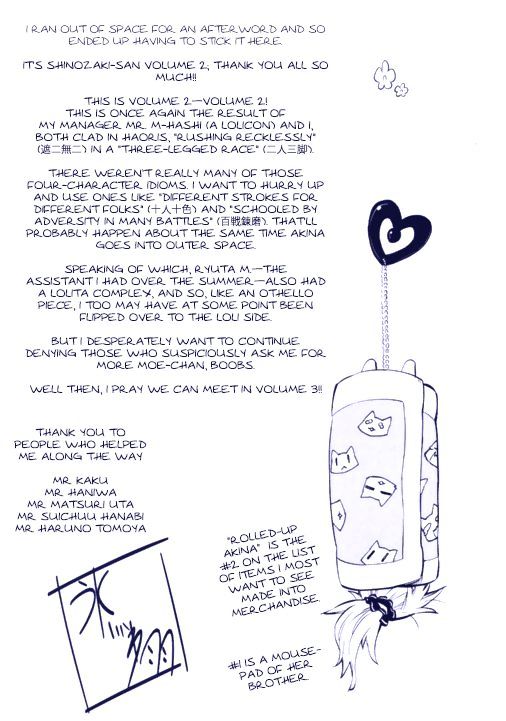 I RAN OUT OF SPACE FOR AN AFTERWORD AND SO
ENDED UP HAVING TO STICK IT HERE.
IT'S SHINOZAKI-SAN VOLUME 2, THANK YOU ALL SO
MUCH!!
THIS IS VOLUME 2—VOLUME 2!
THIS IS ONCE AGAIN THE RESULT OF
MY MANAGER MR. M-HASHI (A LOLICON) AND I,
BOTH CLAD IN HAORIS, "RUSHING RECKLESSLY"
(遮二無二) IN A "THREE-LEGGED RACE" (二人三脚).
THERE WEREN'T REALLY MANY OF THOSE
FOUR-CHARACTER IDIOMS. I WANT TO HURRY UP
AND USE ONES LIKE "DIFFERENT STROKES FOR
DIFFERENT FOLKS" (十人十色) AND "SCHOOLED BY
ADVERSITY IN MANY BATTLES" (百戦錬磨). THAT'LL
PROBABLY HAPPEN ABOUT THE SAME TIME AKINA
GOES INTO OUTER SPACE.
SPEAKING OF WHICH, RYUTA M.—THE
ASSISTANT I HAD OVER THE SUMMER—ALSO HAD
A LOLITA COMPLEX, AND SO, LIKE AN OTHELLO
PIECE, I TOO MAY HAVE AT SOME POINT BEEN
FLIPPED OVER TO THE LOLI SIDE.
BUT I DESPERATELY WANT TO CONTINUE
DENYING THOSE WHO SUSPICIOUSLY ASK ME FOR
MORE MOE-CHAN, BOOBS.
WELL THEN, I PRAY WE CAN MEET IN VOLUME 3!!
THANK YOU TO
PEOPLE WHO HELPED
ME ALONG THE WAY
MR KAKU
MR HANIWA
MR MATSURI UTA
MR SUICHUU HANABI
MR HARUNO TOMOYA
"ROLLED-UP
AKINA" IS THE
#2 ON THE LIST
OF ITEMS I MOST
WANT TO SEE
MADE INTO
MERCHANDISE.
#1 IS A MOUSE-
PAD OF HER
BROTHER